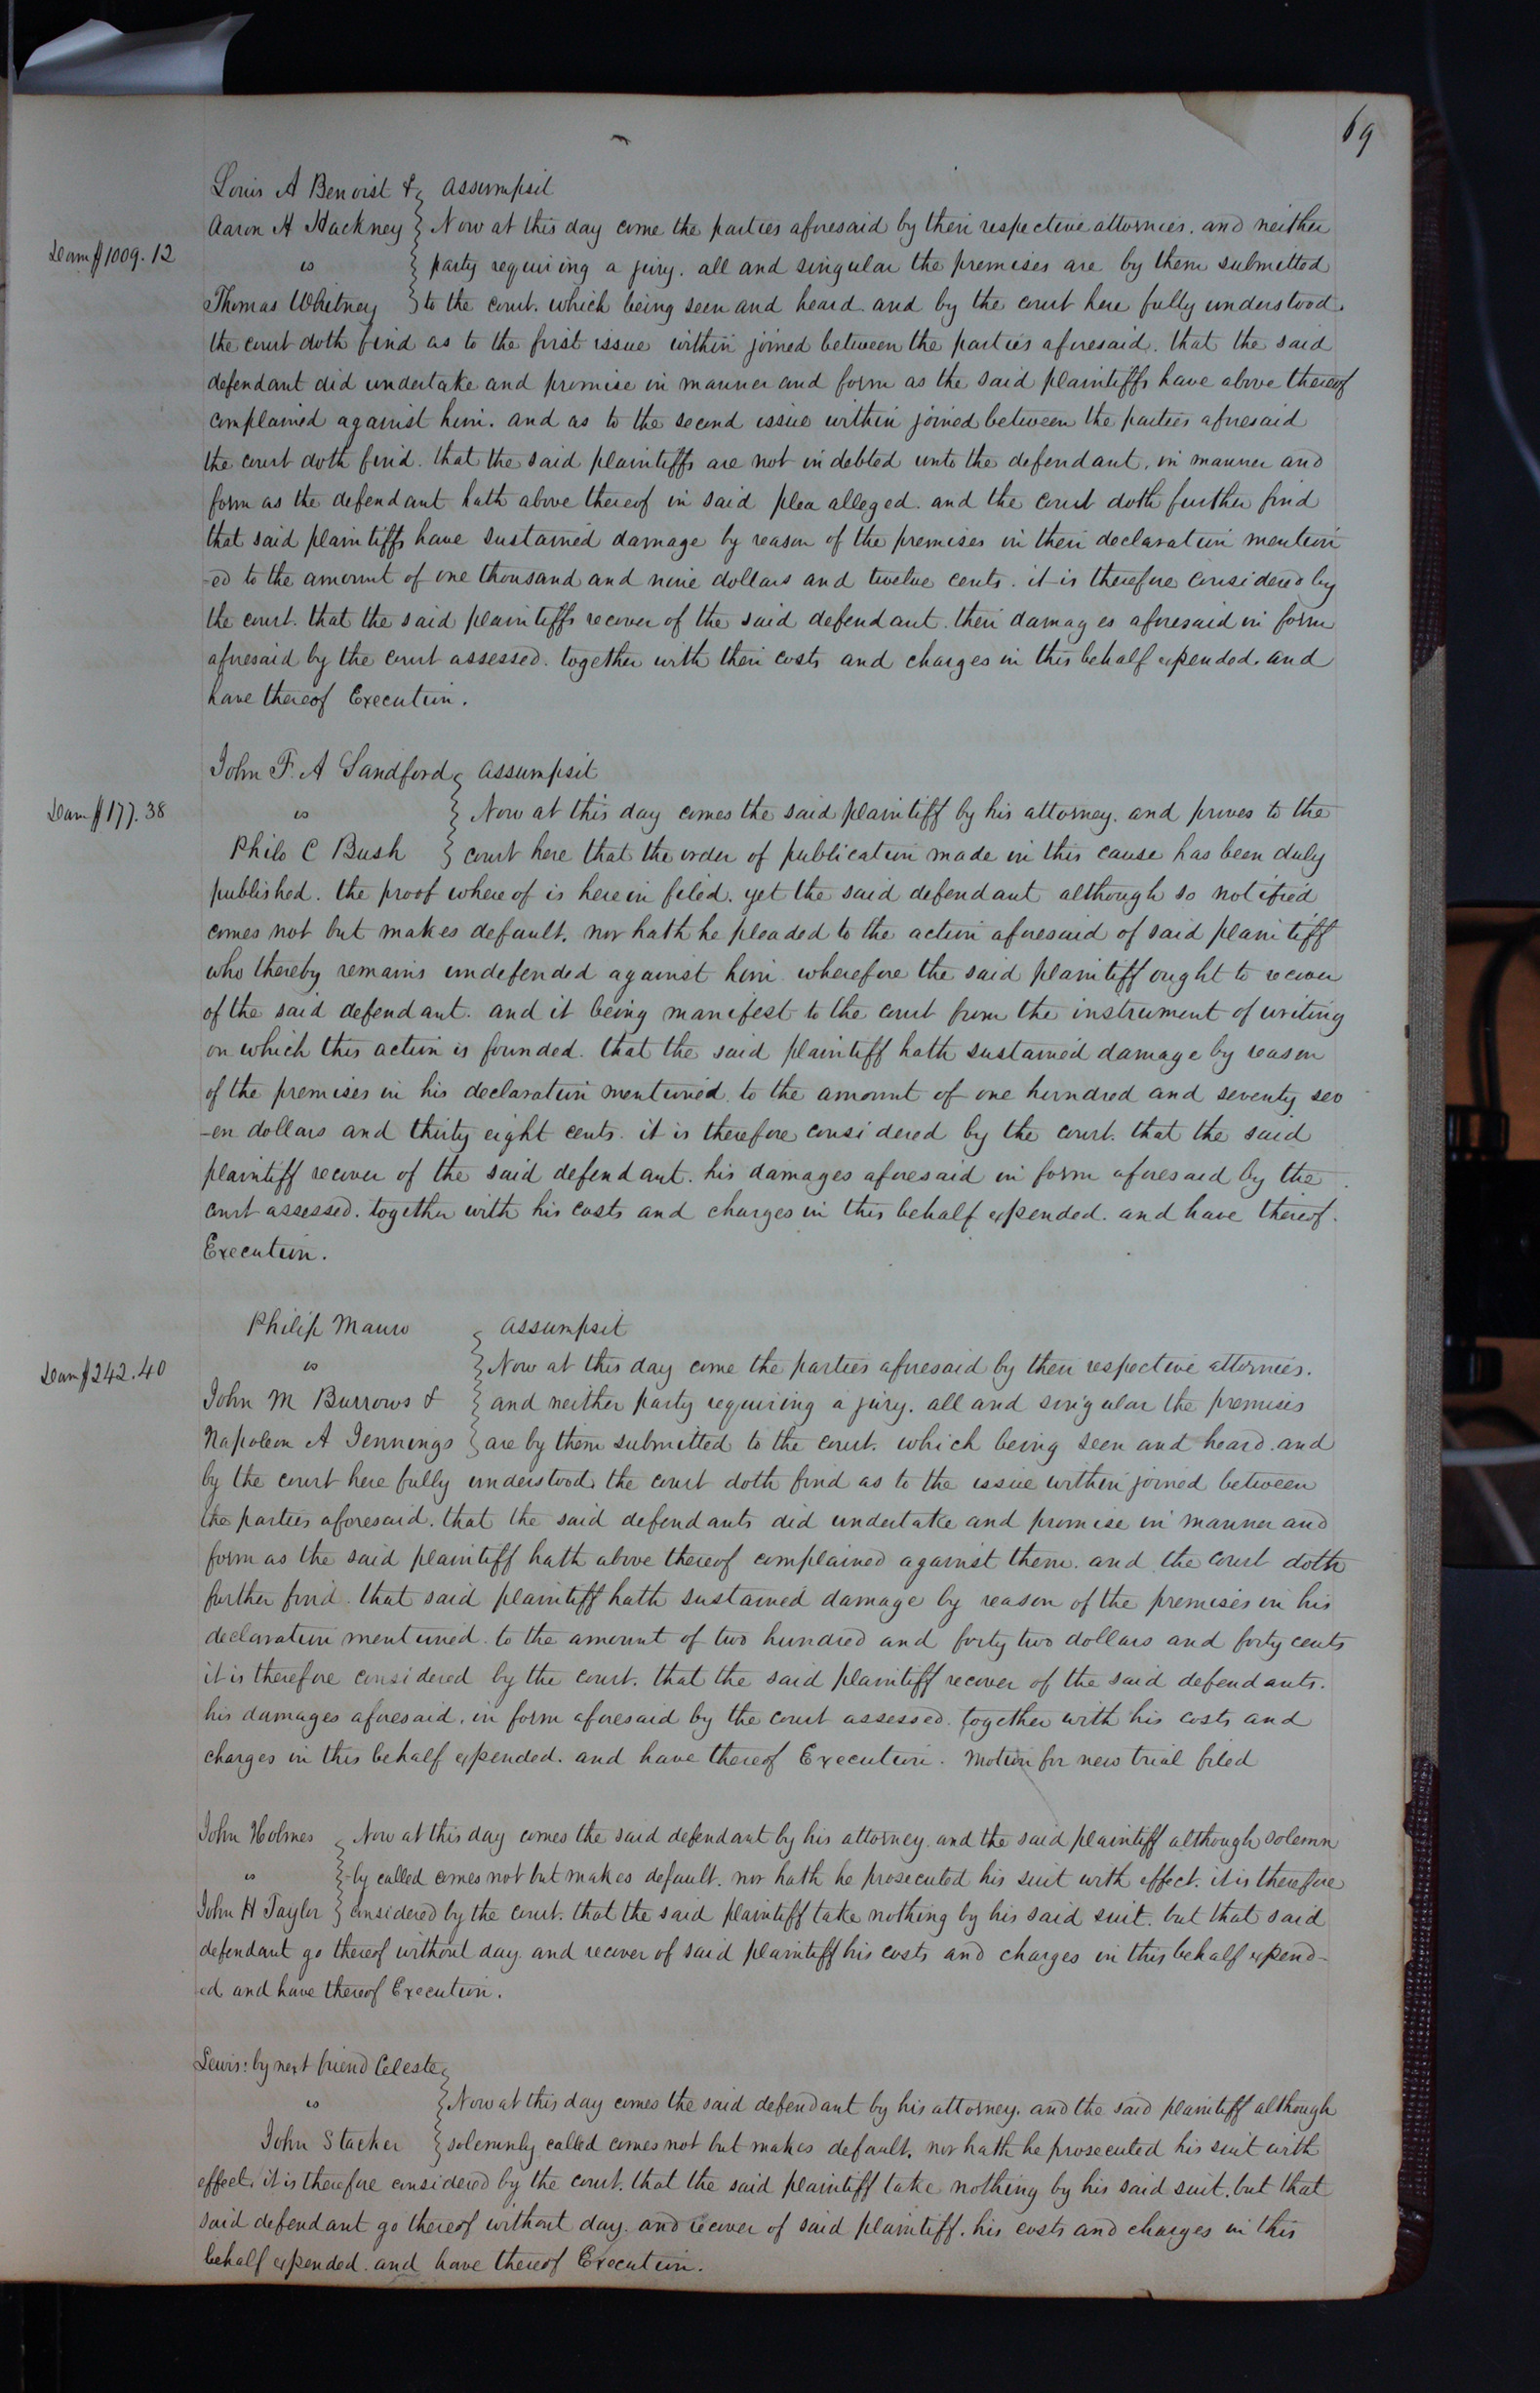 69
Louis A Benoist & } Assumpsit
Aaron H Hackney } Now at this day come the parties aforesaid by their respective attornies. and neither
Dam $1009.12
vs } party requiring a jury. all and singular the premises are by them submitted
Thomas Whitney } to the court. which being seen and heard and by the court here fully understood.
the court doth find as to the first issue within joined between the parties aforesaid. that the said
defendant did undertake and promise in manner and form as the said plaintiffs have above thereof
complained against him. and as to the second issue within joined between the parties aforesaid
the court doth find. that the said plaintiffs are not indebted unto the defendant. in manner and
form as the defendant hath above thereof in said plea alleged. and the court doth further find
that said plaintiffs have sustained damage by reason of the premises in their declaration mention
-ed to the amount of one thousand and nine dollars and twelve cents. it is therefore considered by
the court. that the said plaintiffs recover of the said defendant. their damages aforesaid in form
aforesaid by the court assessed. together with their costs and charges in this behalf expended. and
have thereof Execution.
John F. A Sandford } Assumpsit
Dam $177.38
vs } Now at this day comes the said plaintiff by his attorney. and proves to the
Philo C Bush } court here that the order of publication made in this cause has been duly
published. the proof whereof is herein filed. yet the said defendant although so notified
comes not but makes default. nor hath he pleaded to the action aforesaid of said plaintiff
who thereby remains undefended against him wherefore the said plaintiff ought to recover
of the said defendant. and it being manifest to the court from the instrument of writing
on which this action is founded. that the said plaintiff hath sustained damage by reason
of the premises in his declaration mentioned. to the amount of one hundred and seventy sev
-en dollars and thirty eight cents. it is therefore considered by the court. that the said
plaintiff recover of the said defendant. his damages aforesaid in form aforesaid by the
court assessed. together with his costs and charges in this behalf expended. and have thereof.
Execution.
Philip Mauro } Assumpsit
Dam $242.40
vs } Now at this day come the parties aforesaid by their respective attornies.
John M Burrows & } and neither party requiring a jury. all and singular the premises
Napoleon A Jennings } are by them submitted to the court. which being seen and heard. and
by the court here fully understood. the court doth find as to the issue within joined between
the parties aforesaid. that the said defendants did undertake and promise in manner and
form as the said plaintiff hath above thereof complained against them. and the court doth
further find. that said plaintiff hath sustained damage by reason of the premises in his
declaration mentioned. to the amount of two hundred and forty two dollars and forty cents
it is therefore considered by the court. that the said plaintiff recover of the said defendants.
his damages aforesaid. in form aforesaid by the court assessed. together with his costs and
charges in this behalf expended. and have thereof Execution. Motion for new trial filed
John Holmes } Now at this day comes the said defendant by his attorney. and the said plaintiff although solemn
vs } -ly called comes not but makes default. nor hath he prosecuted his suit with effect. it is therefore
John H Taylor } considered by the court. that the said plaintiff take nothing by his said suit. but that said
defendant go thereof without day. and recover of said plaintiff his costs and charges in this behalf expend-
-ed and have thereof Execution.
Lewis: by next friend Celeste }
vs } Now at this day comes the said defendant by his attorney. and the said plaintiff although
John Stacker } solemnly called comes not but makes default. nor hath he prosecuted his suit with
effect. it is therefore considered by the court. that the said plaintiff take nothing by his said suit. but that
said defendant go thereof without day. and recover of said plaintiff. his costs and charges in this
behalf expended. and have thereof Execution.